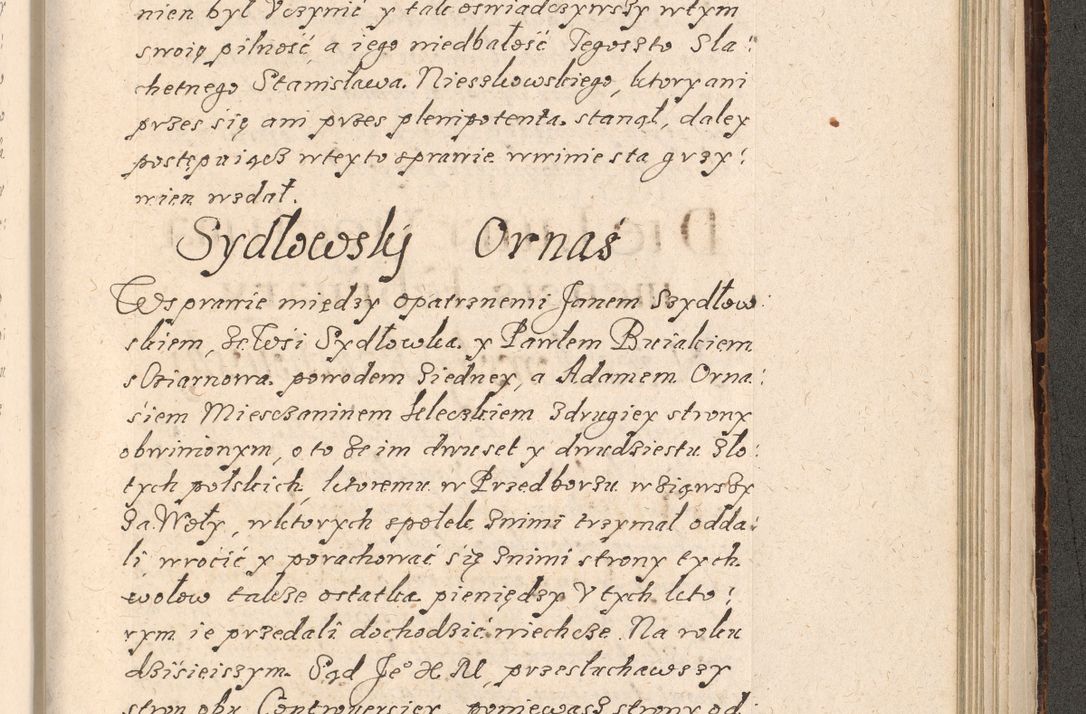 nien był Vczynić y tak oswiadczywszy wtym
swoię pilność, a iego niedbałość Tegoszto Sla:
chetnego Stanisława Nieszkowskiego, ktory ani
przes się ani przes plenipotenta stanął, daley
postępuiącz wteyto sprawie wwinie sta grzy:
wien wzdał.
Sydlowsky Ornaś
W sprawie między opatrznemi Janem Szydłow:
skiem, ze Wsi Sydłowka y Pawłem Buiakiem
s Cziarnowa powodem ziedney, a Adamem Orna:
siem Miesczaninem kieleczkiem zdrugiey strony
obwinionym, o to że im dwuset y dwudziestu zło:
tych polskich, ktoremu w Przedborzu wziąwszy
za Woły, wktorych społek znimi trzymał odda:
li, wrocić y porachować się znimi strony tych
wołow także ostatka pieniędzy V tych kto:
rym ie przedali dochodzić niechcze. Na roku
dzisieiszym. Sąd Je° X M, przesłuchawszy
stron obu Controuersiey, poniewasz strony od